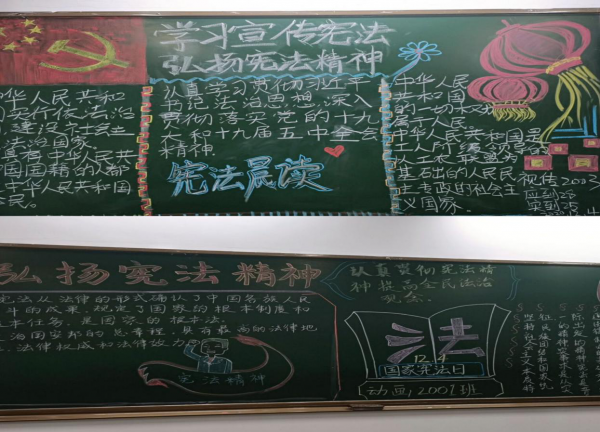 学习宣传宪法
弘扬宪法精神
华人民共和
实行依法治
建设社会主
法治国家
具有中华人民共
国国籍的人都
中华人民共和国
民。
认真学习贯彻习近平
书记法治思想，深入
贯彻落实党的十九
大和十九届五中全会
精神.
宪法晨读
中华人民
共和国
的一切权力
属于人民
中华人民共和国是
工人阶级领导的
以工农联盟为
基础的人民民
主专政的社会主
义国家.
视传2003
弘扬宪法精神
宪法以法律的形式确认了中国各族人民
斗的成果，规定了国家的根本制度和
本任务，是国家的根本法
治国安邦的总章程，具有最高的法律地
、法律权威和法律效力
宪法精神
认真贯彻宪法精
神提高全民法治
观念。
法
12.4
国家宪法日
动画2002班